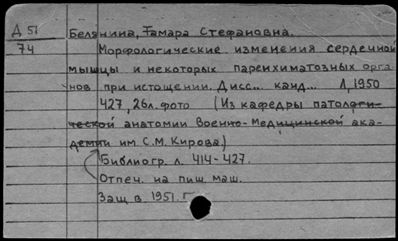 Д 51 Белянина, Тамара Стефановна.
74 Морфологические изменения сердечной
мышцы и некоторых паренхиматозных орга-
нов при истощении. Дисс... канд... Л, 1950
427, 26л. фото (Из кафедры патологи-
ческой анатомии Военно-Медицинской ака-
демии им С.М. Кирова)
Библиогр. л. 414-427.
Отпеч. на пиш маш.
Защ в. 1951. Г